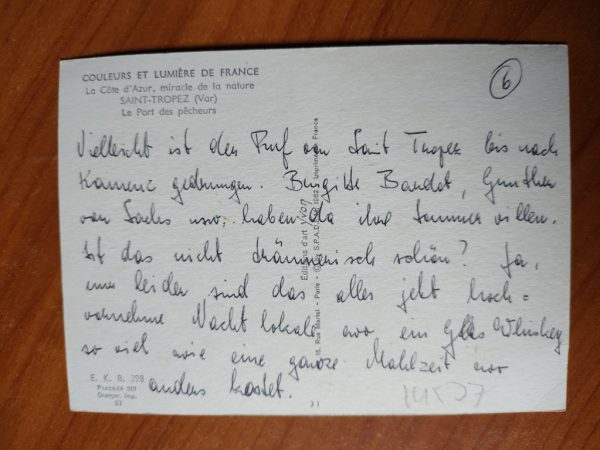 COULEURS ET LUMIÈRE DE FRANCE
La Côte d'Azur, miracle de la nature
SAINT-TROPEZ (Var)
Le Port des pêcheurs
6
Vielleicht ist der Ruf von Saint Tropez bis nach
Kamenz gedrungen. Burgitte Bardot, Gunther
von Sachs usw. haben da ihre Sommervillen.
Ist das nicht träumerisch schön? Ja,
nur leider sind das alles jetzt hoch=
vornehme Nachtlokale wo ein Glas Whiskey
so viel wie eine ganze Mahlzeit wo
anders kostet.
Editions d'art YVON
15, Rue Martel - Paris - Imprimé en France
E. K. B. 398
Procédé 301
Draeger, imp.
63
31